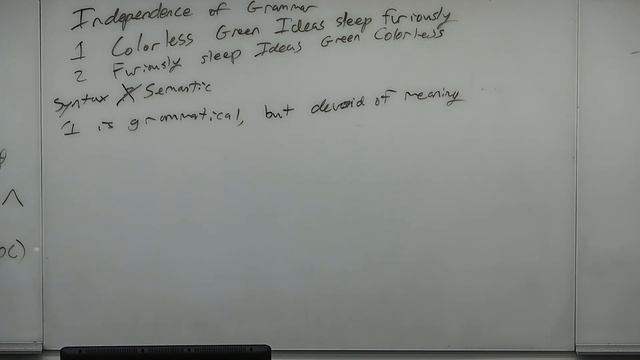 Independence of Grammar
1 Colorless Green Ideas sleep furiously
2 Furiously sleep Ideas Green Colorless
Syntax Semantic
1 is grammatical, but devoid of meaning